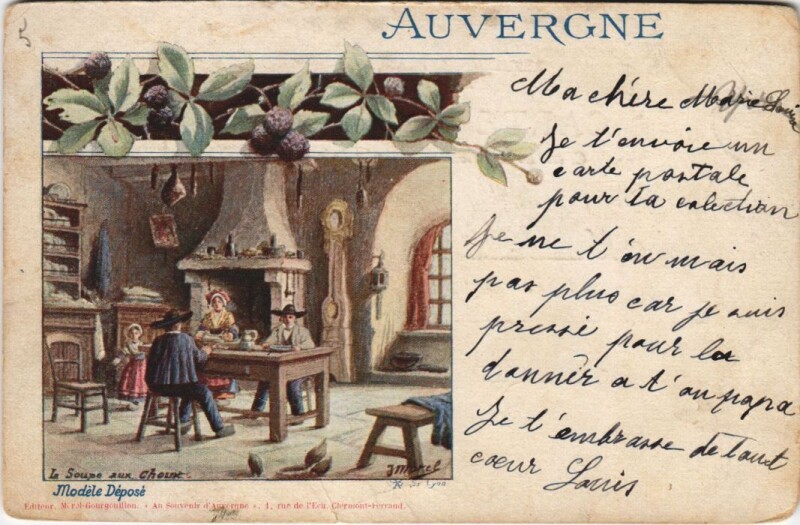 5
AUVERGNE
Ma chère Marie Louise
Je t'envoie un
carte postale
pour ta colection
Je ne t'en mais
pas plus car je suis
pressé pour la
donnér a t'on papa
Je t'embrasse de tout
cœur Louis
La Soupe aux Choux
J Morel
Modèle Déposé
Éditeur, Morel-Gourgouillon. « Au Souvenir d'Auvergne », 1, rue de l'Écu, Clermont-Ferrand.